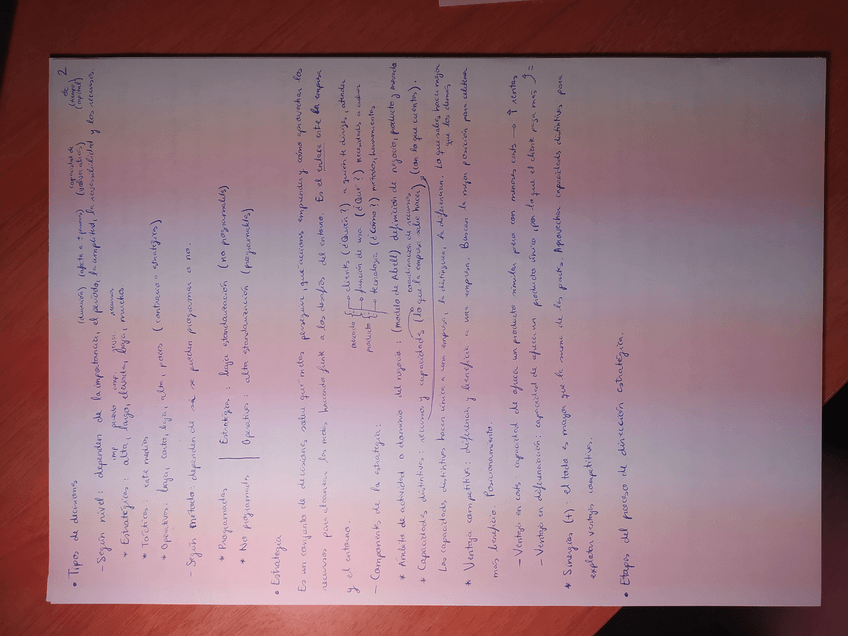 2
• Tipos de decisiones
(duración) (afecta a + planos) capacidad de (volver atrás) de (tiempo) (capital)
- Según nivel: dependen de la importancia, el periodo, la amplitud, la reversibilidad y los recursos.
imp periodo imp recursos
* Estratégicas: alta, largo, elevada, baja, muchos
* Tácticas: este medio
* Operativas: baja, corto, baja, alta, pocos (contrario a estratégicas)
- Según método: dependen de si se pueden programar o no.
* Programadas | Estratégicas: baja standarización (no programables)
* No programadas | Operativas: alta standarización (programables)
• Estrategia
Es un conjunto de decisiones sobre qué metas perseguir, qué acciones emprender y cómo aprovechar los
recursos para alcanzar las metas haciendo frente a los desafíos del entorno. Es el enlace entre la empresa
y el entorno.
mercado → clientes (¿Quién?) a quién te diriges, atiendes
→ función de uso (¿Qué?) necesidades a cubrir
producto → tecnología (¿Cómo?) métodos, herramientas
- Componentes de la estrategia:
* Ámbito de actividad o dominio del negocio: (modelo de Abell) definición de negocio, producto y mercado
combinación de recursos
* Capacidades distintivas: recursos y capacidades (lo que la empresa sabe hacer), (con lo que cuentas).
Las capacidades distintivas hacen única a una empresa, la distinguen, la diferencian. Lo que sabes hacer mejor que los demás
* Ventaja competitiva: diferencia y beneficia a una empresa. Buscan la mejor posición para obtener
más beneficio. Posicionamiento.
- Ventaja en costes: capacidad de ofrecer un producto similar pero con menores costes → ↑ ventas
- Ventaja en diferenciación: capacidad de ofrecer un producto único, por lo que el cliente paga más ↑ =
* Sinergias (+) el todo es mayor que la suma de las partes. Aprovechar capacidades distintivas para
explotar ventajas competitivas.
• Etapas del proceso de dirección estratégica.